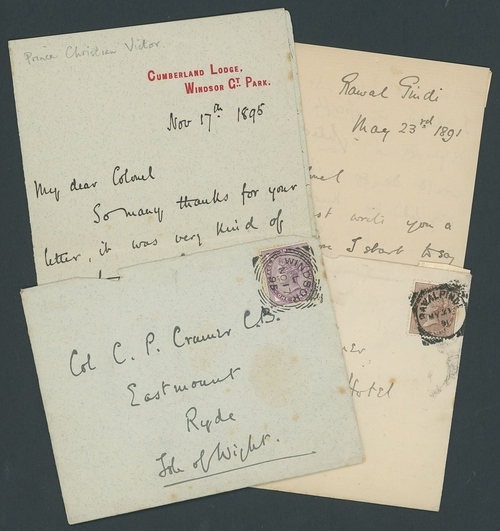 Prince Christian Victor.
CUMBERLAND LODGE,
WINDSOR GT. PARK.
Nov 17th 1895
My dear Colonel
So many thanks for your
letter, it was very kind of
Rawal Pindi
May 23rd 1891
write you a
I start to say
WINDSOR
Col C. P. Cramer C.B.
Eastmount
Ryde
Isle of Wight.
RAWALPINDI
Hotel